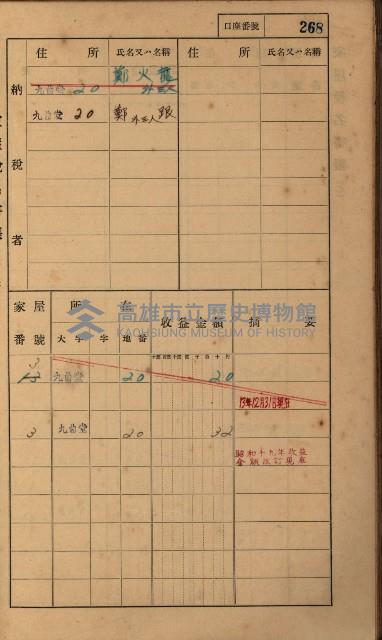 口座番號 268
住所 氏名又ハ名稱 住所 氏名又ハ名稱
納稅者
九曲堂 20 鄭火龍 外三人
九曲堂 20 鄭 外三人
家屋番號 所在 大字 字 地番 收益金額 摘要
高雄市立歷史博物館
KAOHSIUNG MUSEUM OF HISTORY
3
13 九曲堂 20 20
13年12月31日現在
3 九曲堂 20 32
昭和十九年收益
金額改訂